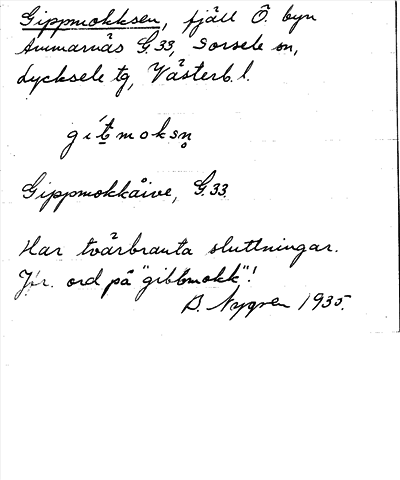 Gippmokksen, fjäll Ö. byn
Ammarnäs G.33, Sorsele sn,
Lycksele tg, Västerb. l.
gítmoksn̥
Gippmokkåive, G.33.
Har tvärbranta sluttningar.
Jfr. ord på "gibbmokk"!
B. Nygren 1935.